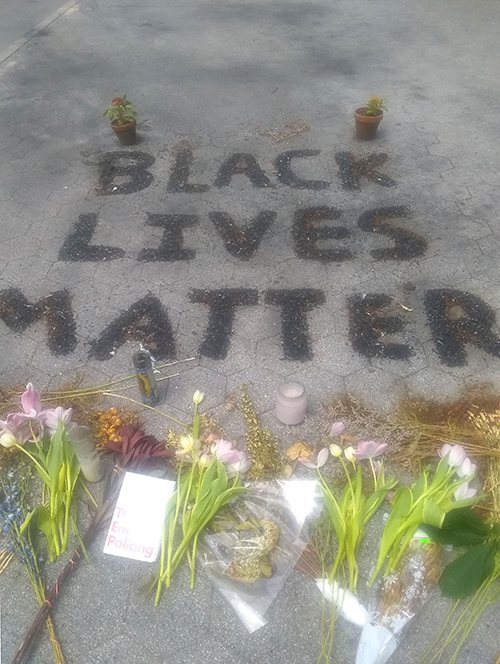 BLACK
LIVES
MATTER
The
End
Policing